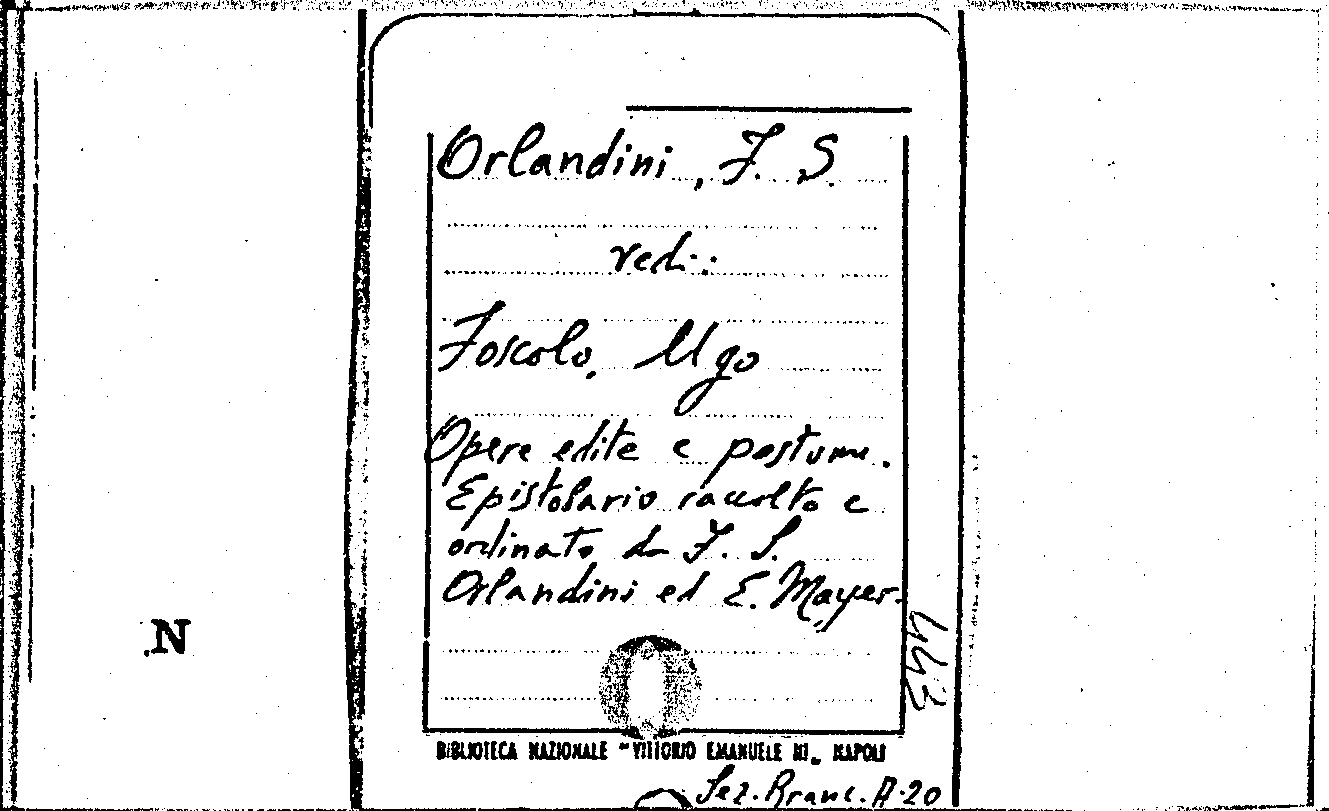 Orlandini, F. S.
vedi:
Foscolo, Ugo
Opere edite e postume.
Epistolario raccolto e
ordinato da F. S.
Orlandini ed E. Mayer.
N
443
BIBLIOTECA NAZIONALE "VITTORIO EMANUELE III" NAPOLI
Sez. Branc. A. 20